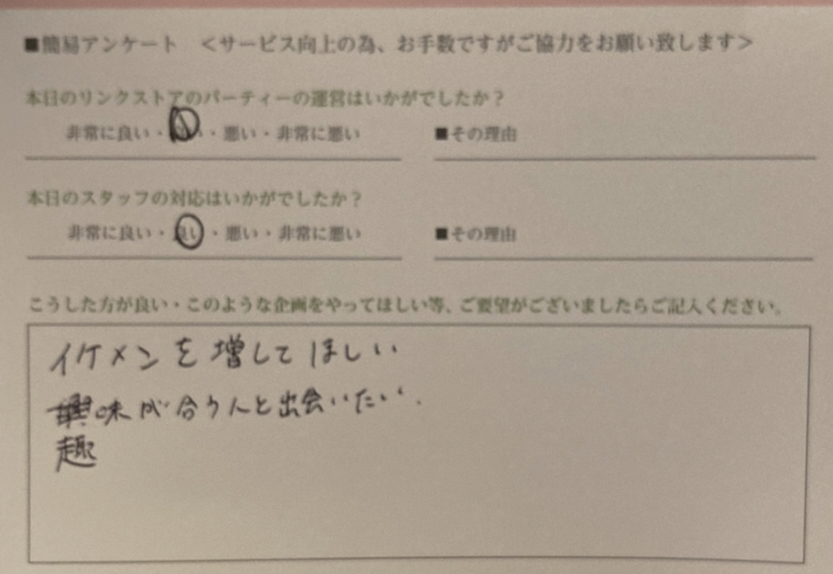 ■簡易アンケート <サービス向上の為、お手数ですがご協力をお願い致します>
本日のリンクストアのパーティーの運営はいかがでしたか?
非常に良い・良い・悪い・非常に悪い ■その理由
本日のスタッフの対応はいかがでしたか?
非常に良い・良い・悪い・非常に悪い ■その理由
こうした方が良い・このような企画をやってほしい等、ご要望がございましたらご記入ください。
イケメンを増してほしい
味が合う人と出会いたい.
趣